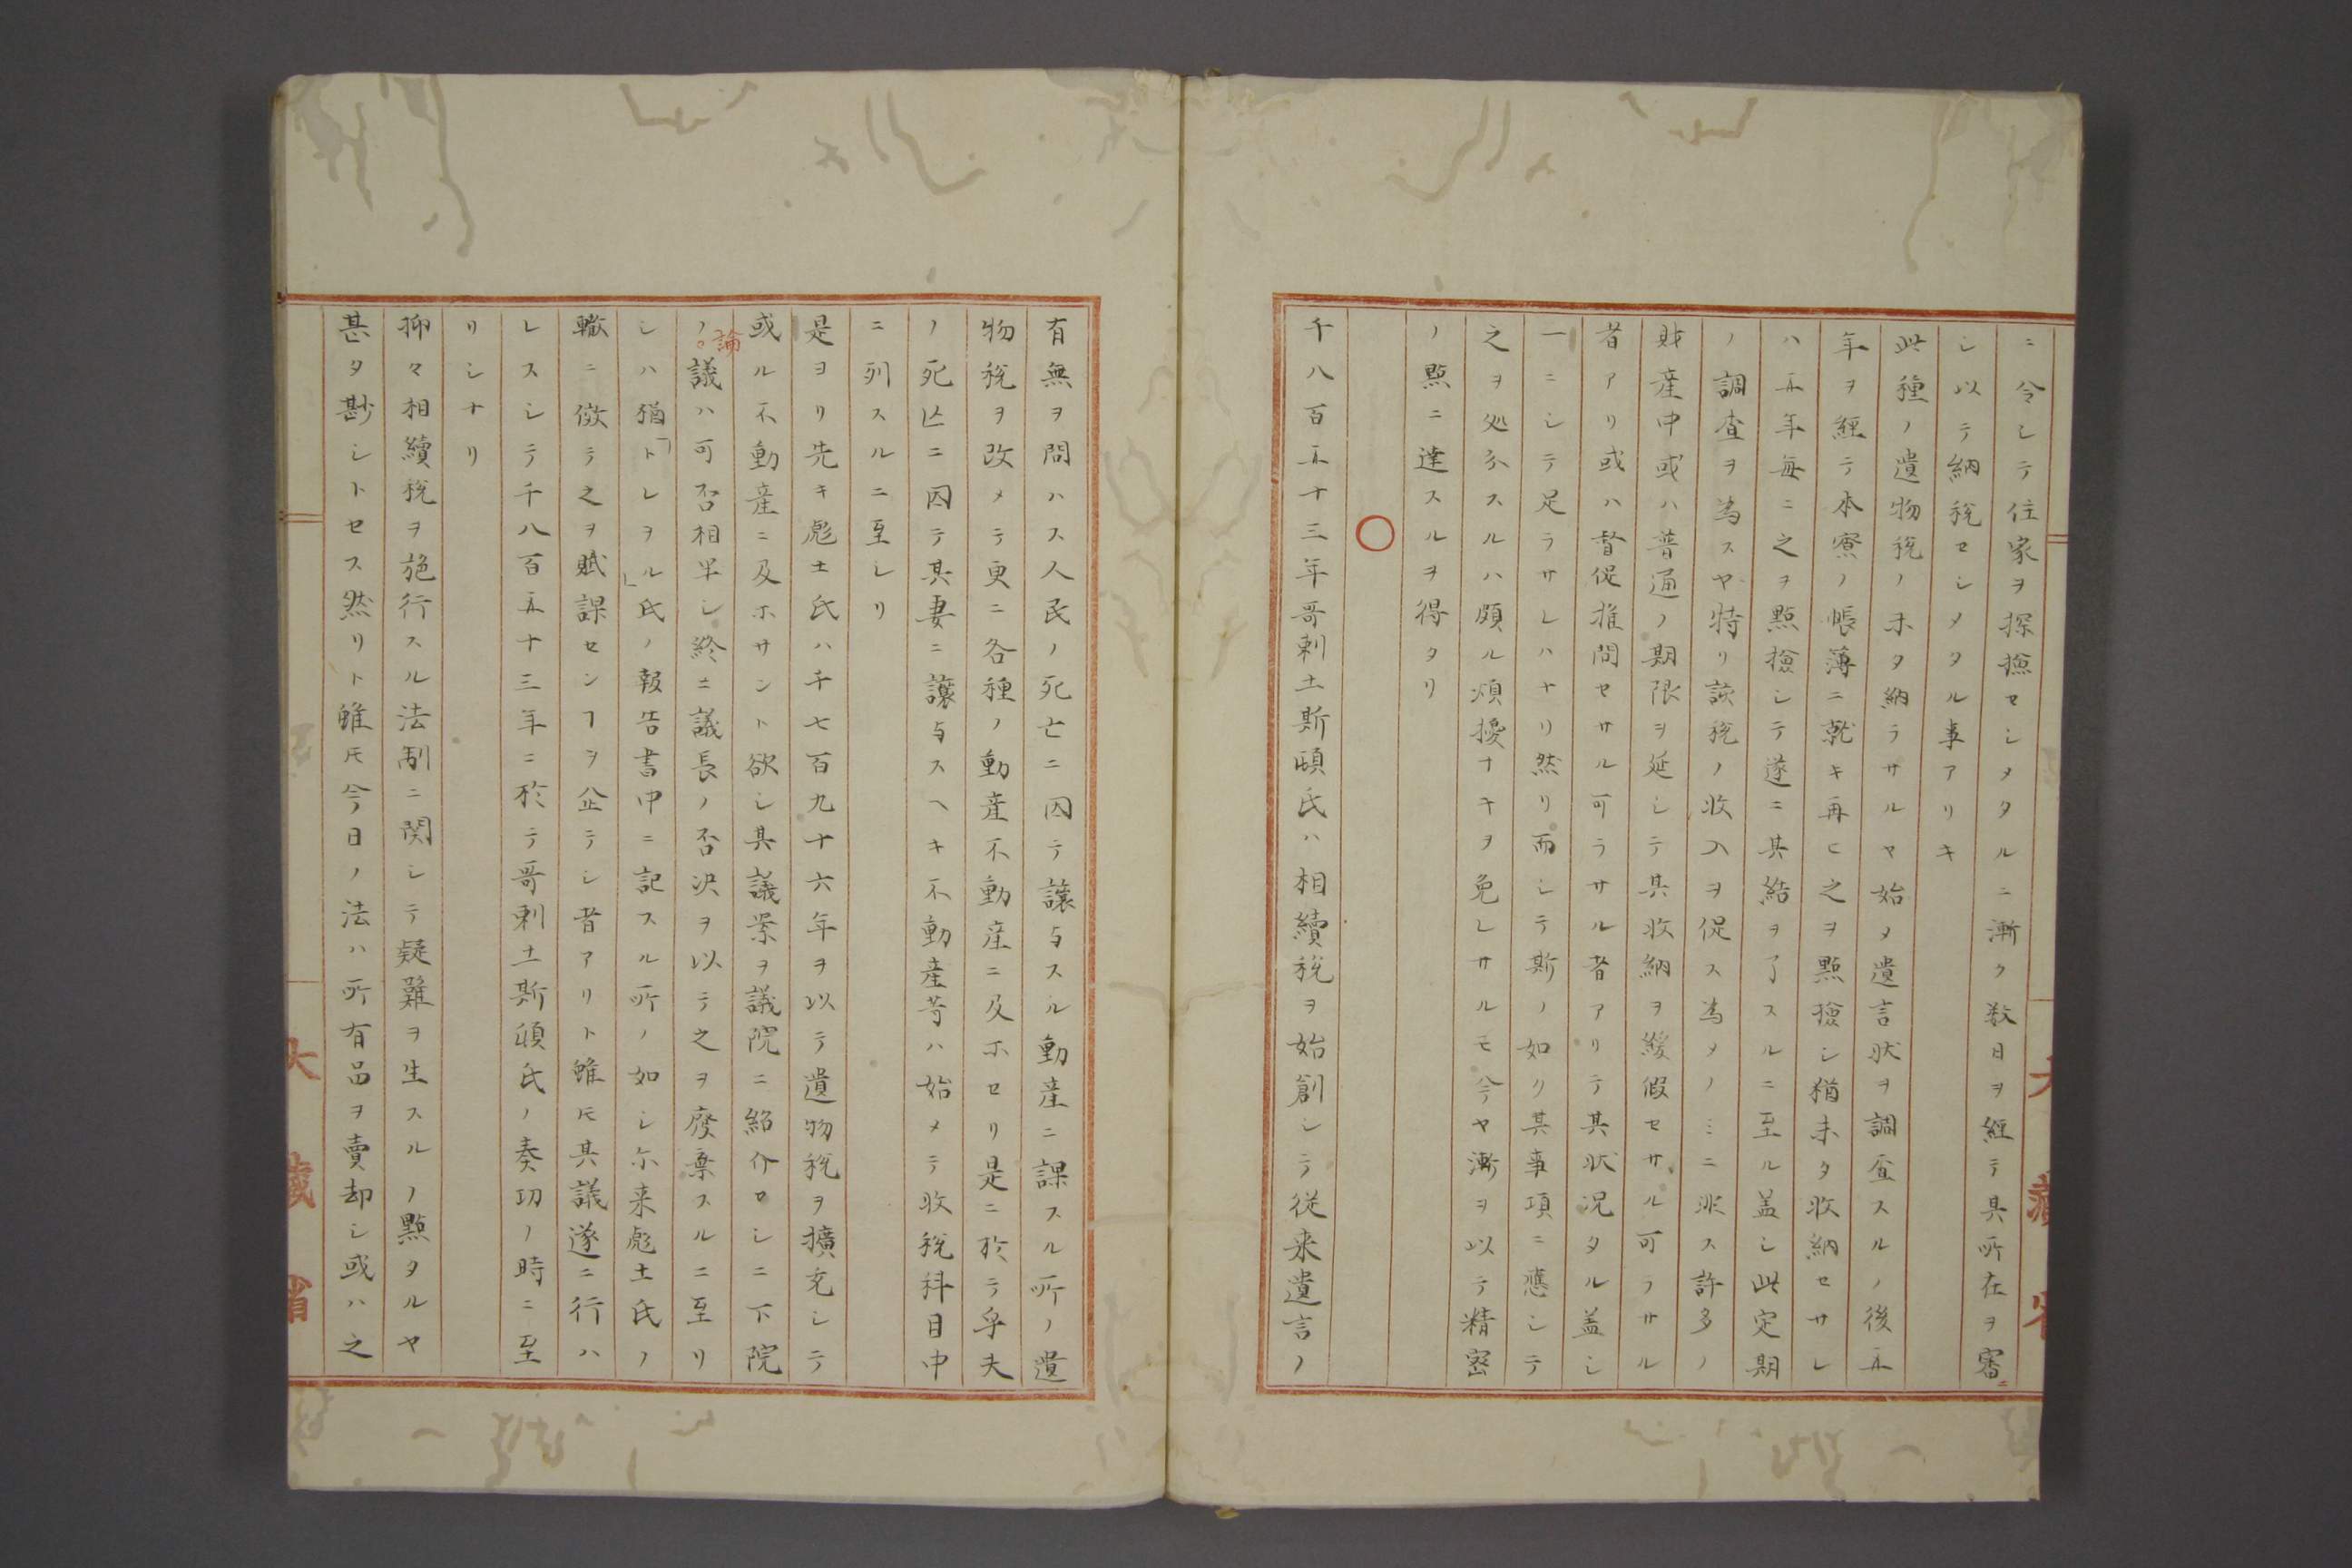 ニ令シテ住家ヲ探撿セシメタルニ漸ク数日ヲ經テ具所在ヲ審ニ
シ以テ納稅セシメタル事アリキ
此種ノ遺物稅ノ未タ納ラサルヤ始メ遺言狀ヲ調查スルノ後五
年ヲ經テ本寮ノ帳薄ニ就キ再ヒ之ヲ點撿シ猶未タ收納セサレ
ハ五年每ニ之ヲ點撿シテ遂ニ其結ヲ了スルニ至ル盖シ此定期
ノ調查ヲ為スヤ特リ該稅ノ收入ヲ促ス為メノミニ非ス許多ノ
財產中或ハ普通ノ期限ヲ延シテ其收納ヲ緩假セサル可ラサル
者アリ或ハ督促推問セサル可ラサル者アリテ其狀況タル盖シ
一ニシテ足ラサレハナリ然リ而シテ斯ノ如ク其事項ニ應シテ
之ヲ処分スルハ頗ル煩擾ナキヲ免レサルモ今ヤ漸ヲ以テ精密
ノ點ニ達スルヲ得タリ
〇
千八百五十三年哥剌士斯頓氏ハ相續稅ヲ始創シテ從来遺言ノ
大藏省
有無ヲ問ハス人民ノ死亡ニ因テ讓与スル動產ニ課スル所ノ遺
物稅ヲ改メテ更ニ各種ノ動產不動產ニ及ホセリ是ニ於テ乎夫
ノ死亡ニ因テ其妻ニ讓与スヘキ不動產等ハ始メテ收稅科目中
ニ列スルニ至レリ
是ヨリ先キ彪士氏ハ千七百九十六年ヲ以テ遺物稅ヲ擴充シテ
或ル不動產ニ及ホサント欲シ其議案ヲ議院ニ紹介セシニ下院
ノ論議ハ可否相半シ終ニ議長ノ否決ヲ以テ之ヲ廢棄スルニ至リ
シハ猶「トレヲル」氏ノ報告書中ニ記スル所ノ如シ尓来彪士氏ノ
轍ニ倣テ之ヲ賦課センヿヲ企テシ者アリト雖𪜈其議遂ニ行ハ
レスシテ千八百五十三年ニ於テ哥剌士斯頓氏ノ奏功ノ時ニ至
リシナリ
抑々相續稅ヲ施行スル法制ニ関シテ疑難ヲ生スルノ點タルヤ
甚タ尠シトセス然リト雖𪜈今日ノ法ハ所有品ヲ賣却シ或ハ之
大藏省